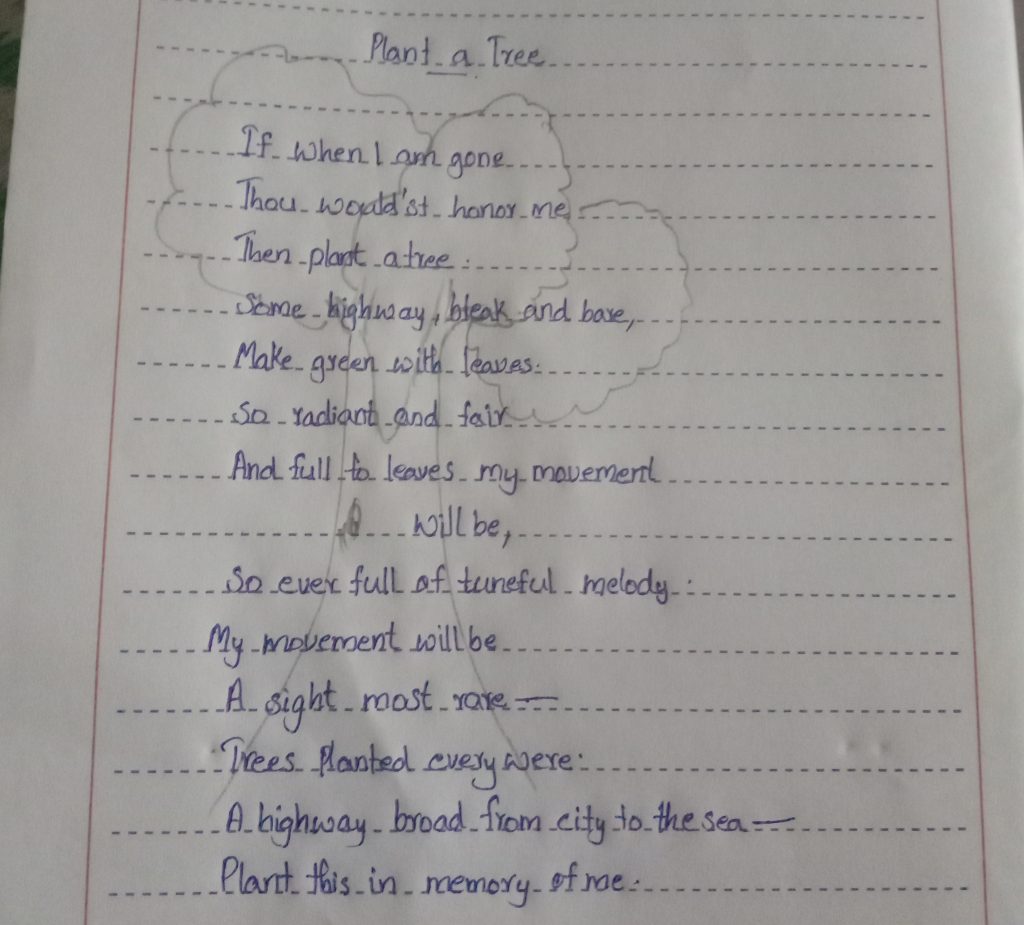 Plant a Tree
If when I am gone
Thou would'st honor me
Then plant a tree :
Some highway, bleak and bare,
Make green with leaves.
So radiant and fair
And full to leaves my movement
will be,
So ever full of tuneful melody :
My movement will be
A sight most rare —
Trees Planted every were:
A highway broad from city to the sea —
Plant this in memory of me.